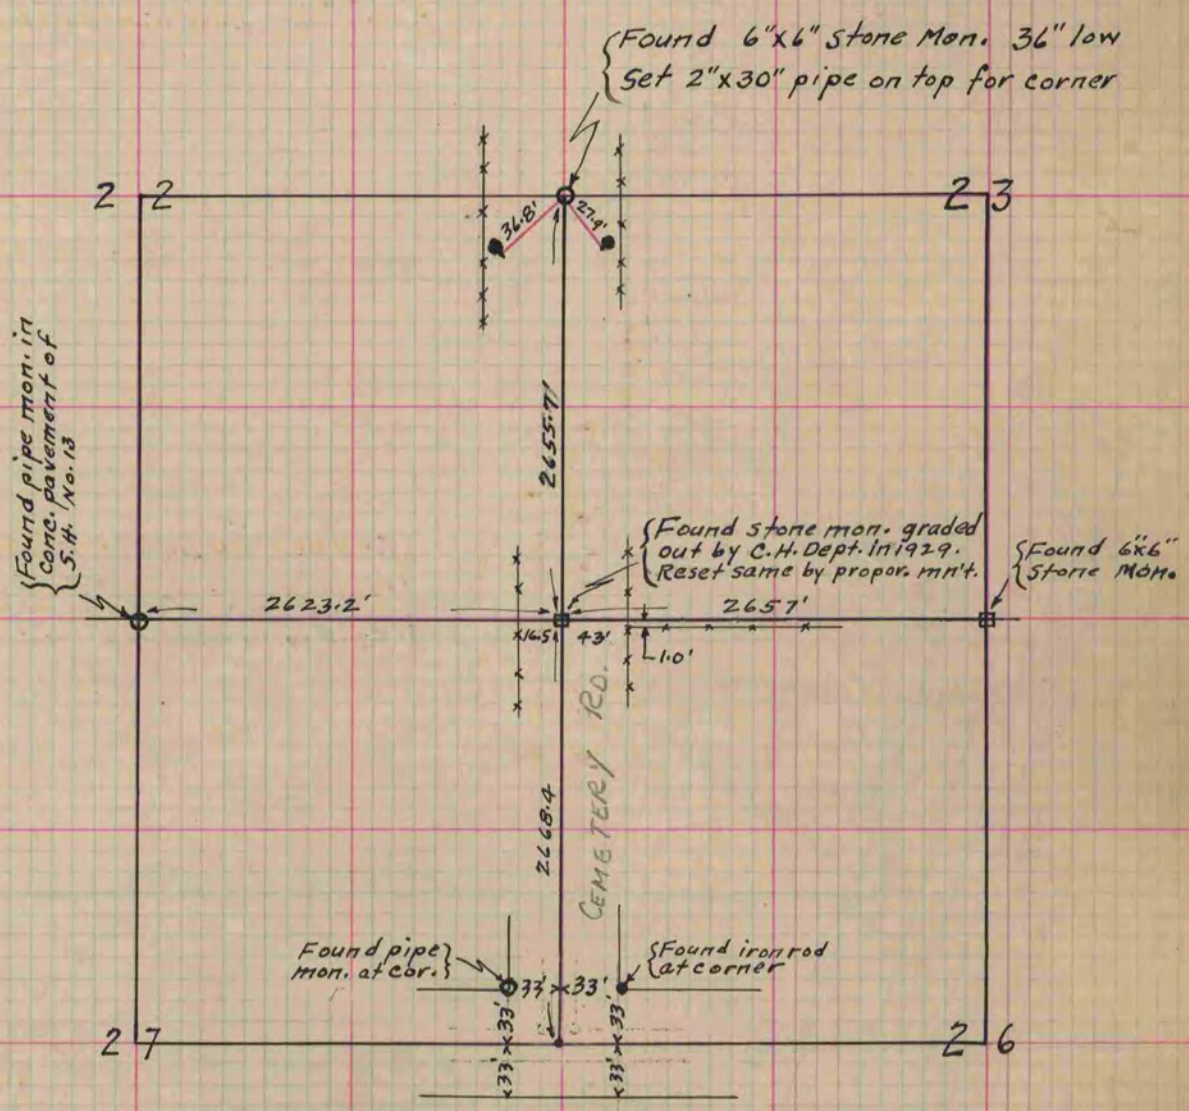 Found 6"x6" Stone Mon. 36" low
Set 2"x30" pipe on top for corner
2 2
2 3
36.8'
27.9'
Found pipe mon. in
Conc. pavement of
S.H. No. 13
2655.71
Found stone mon. graded
out by C.H. Dept. in 1929.
Reset same by propor. mn't.
Found 6"x6"
Stone Mon.
2623.2'
2657'
16.5'
43'
1.0'
CEMETERY RD.
2668.4
Found pipe
mon. at cor.
Found iron rod
at corner
33' 33'
33' 33'
33' 33'
2 7
2 6